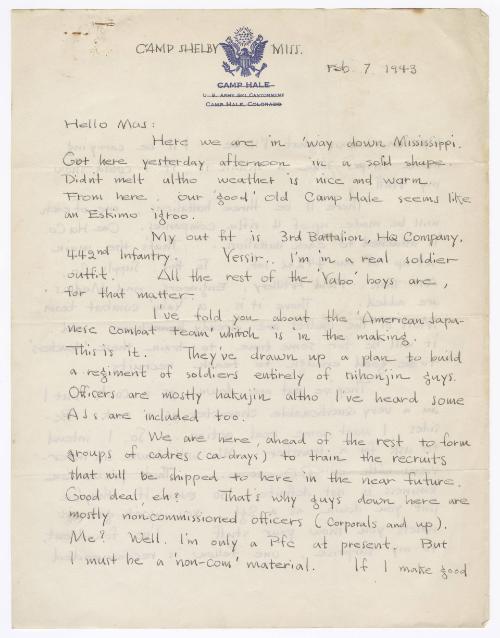 CAMP SHELBY MISS.
Feb. 7 1943
CAMP HALE
U. S. ARMY SKI CANTONMENT
CAMP HALE, COLORADO
Hello Mas:
Here we are in 'way down Mississippi.
Got here yesterday afternoon in a solid shape.
Didn't melt altho weather is nice and warm.
From here, our 'good' old Camp Hale seems like
an Eskimo 'igroo.
My out fit is 3rd Battalion, HQ Company,
442nd Infantry. Yessir.. I'm in a real soldier
outfit. All the rest of the 'Yabo' boys are,
for that matter—
I've told you about the 'American Japa-
nese combat team' whitch is in the making.
This is it. They've drawn up a plan to build
a regiment of soldiers entirely of nihonjin guys.
Officers are mostly hakujin altho I've heard some
AJs are included too.
We are here, ahead of the rest to form
groups of cadres (ca-drays) to train the recruits
that will be shipped to here in the near future.
Good deal, eh? That's why guys down here are
mostly non-commissioned officers (Corporals and up).
Me? Well, I'm only a Pfc at present. But
I must be a 'non-com' material. If I make good